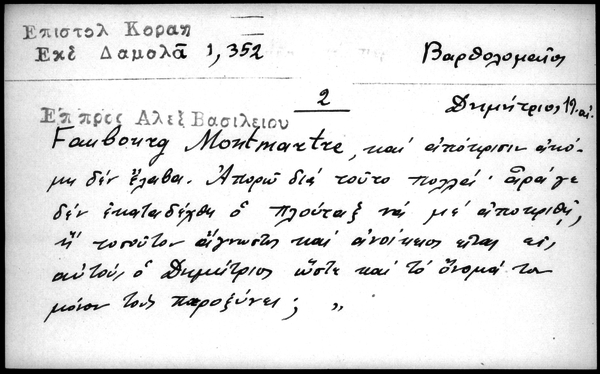 Επιστολ Κοραη
Εκδ Δαμαλᾶ 1,352
Βαρθολομαῖος
2
Δημήτριος 19 αἰ.
Επ προς Αλεξ Βασιλειου
Faubourg Montmartre, καὶ ἀπόκρισιν ἀκό-
μη δὲν ἔλαβα. Ἀπορῶ διὰ τοῦτο πολλά· ἆρά γε
δὲν ἐκαταδέχθη ὁ Πλούταξ νὰ μὲ ἀποκριθῇ,
ἢ τοσοῦτον ἄγνωστος καὶ ἀνοίκειος εἰς
αὐτούς, ὁ Δημήτριος ὥστε καὶ τὸ ὄνομά του
μόνον τοὺς παροξύνει; "